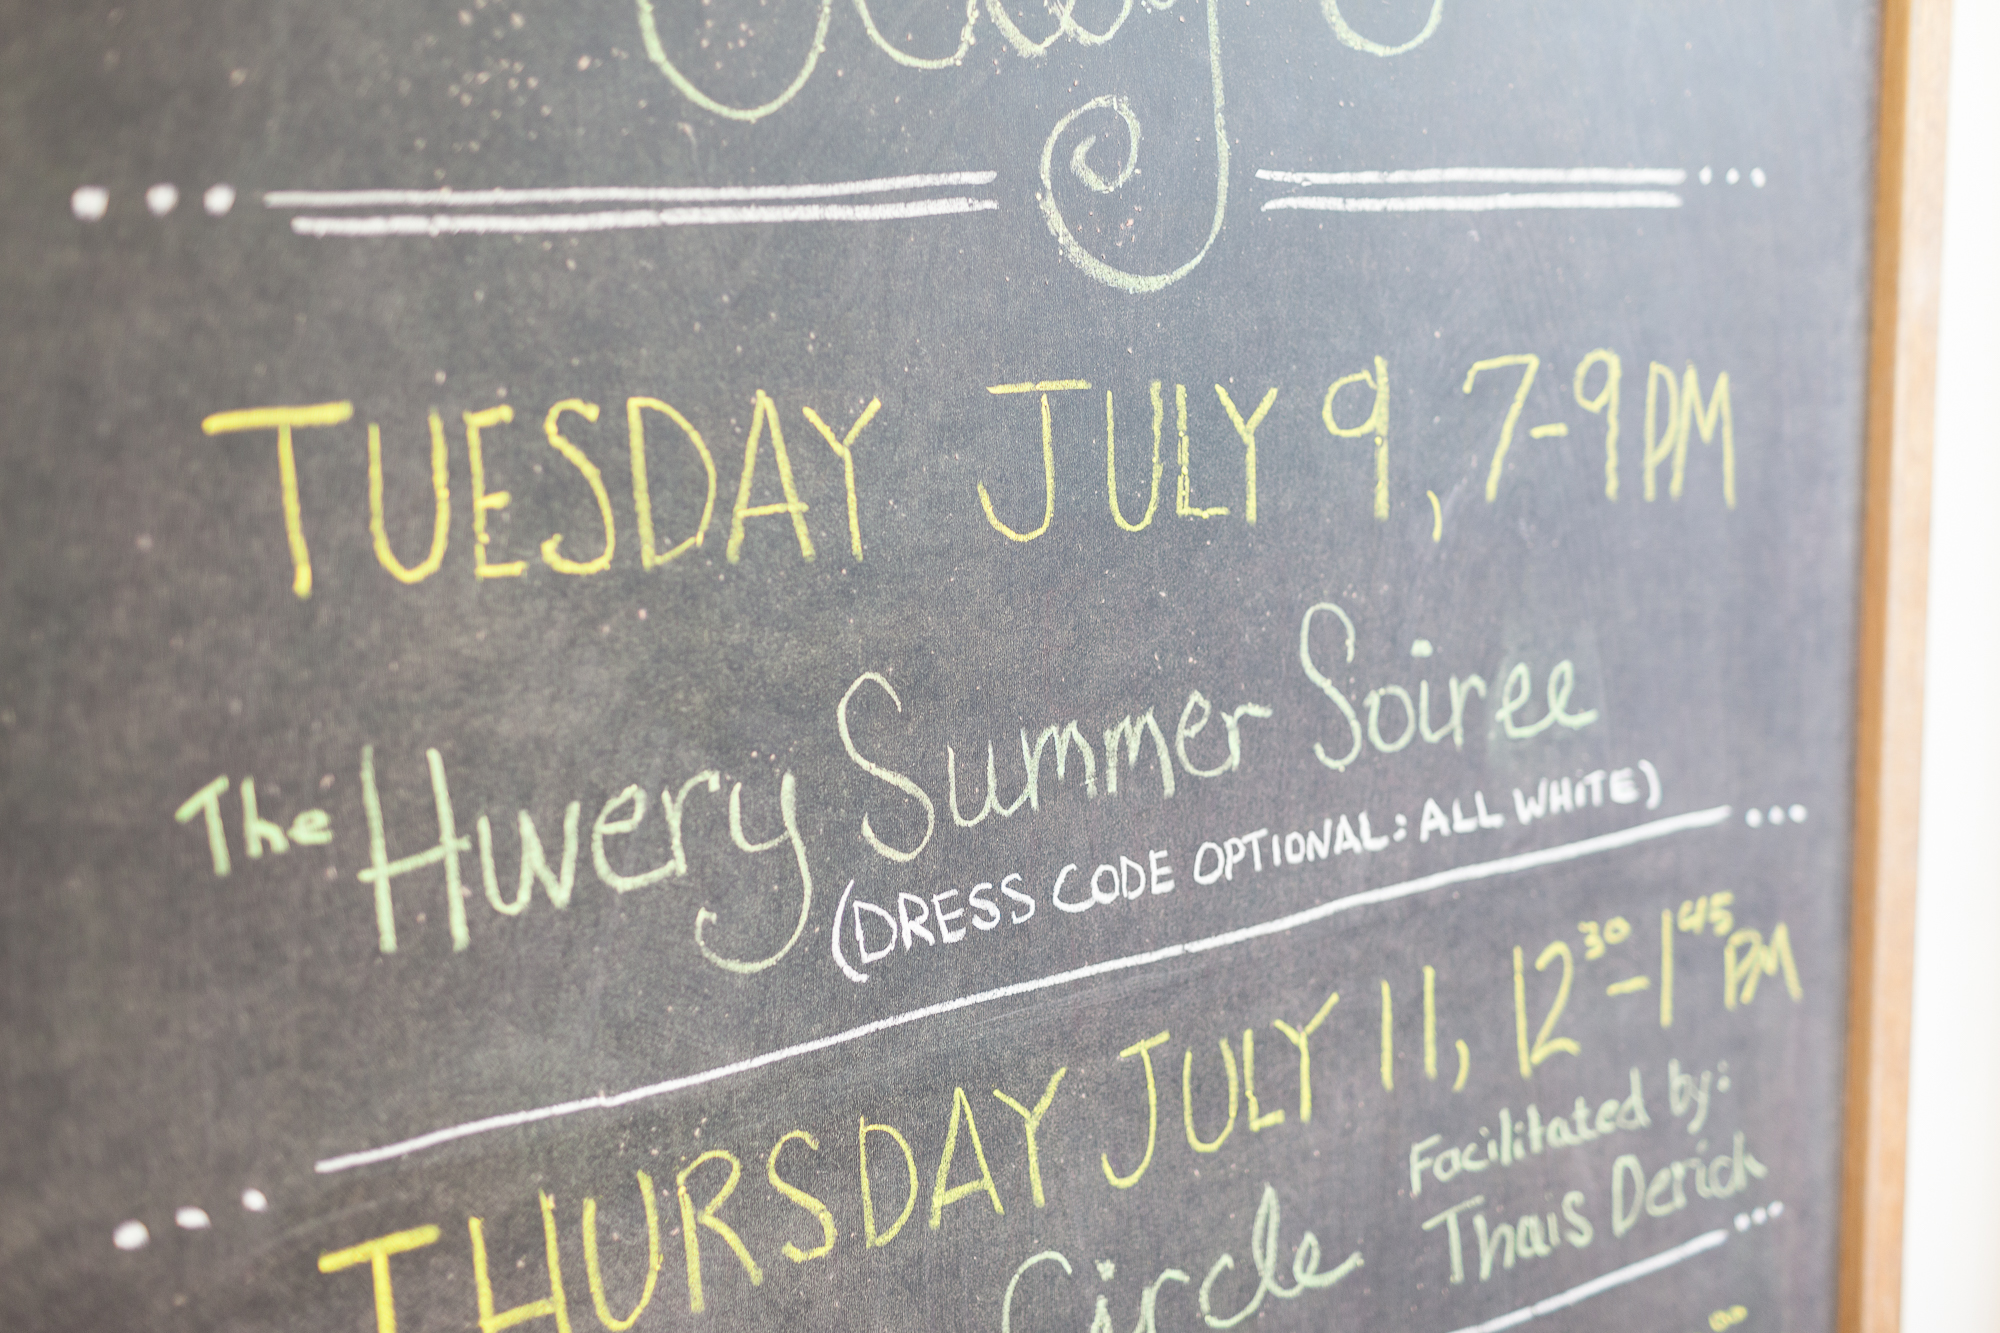 TUESDAY JULY 9, 7-9PM
The Hwery Summer Soiree
(DRESS CODE OPTIONAL: ALL WHITE)
THURSDAY JULY 11, 1230-145PM
Facilitated by:
Circle Thais Derick